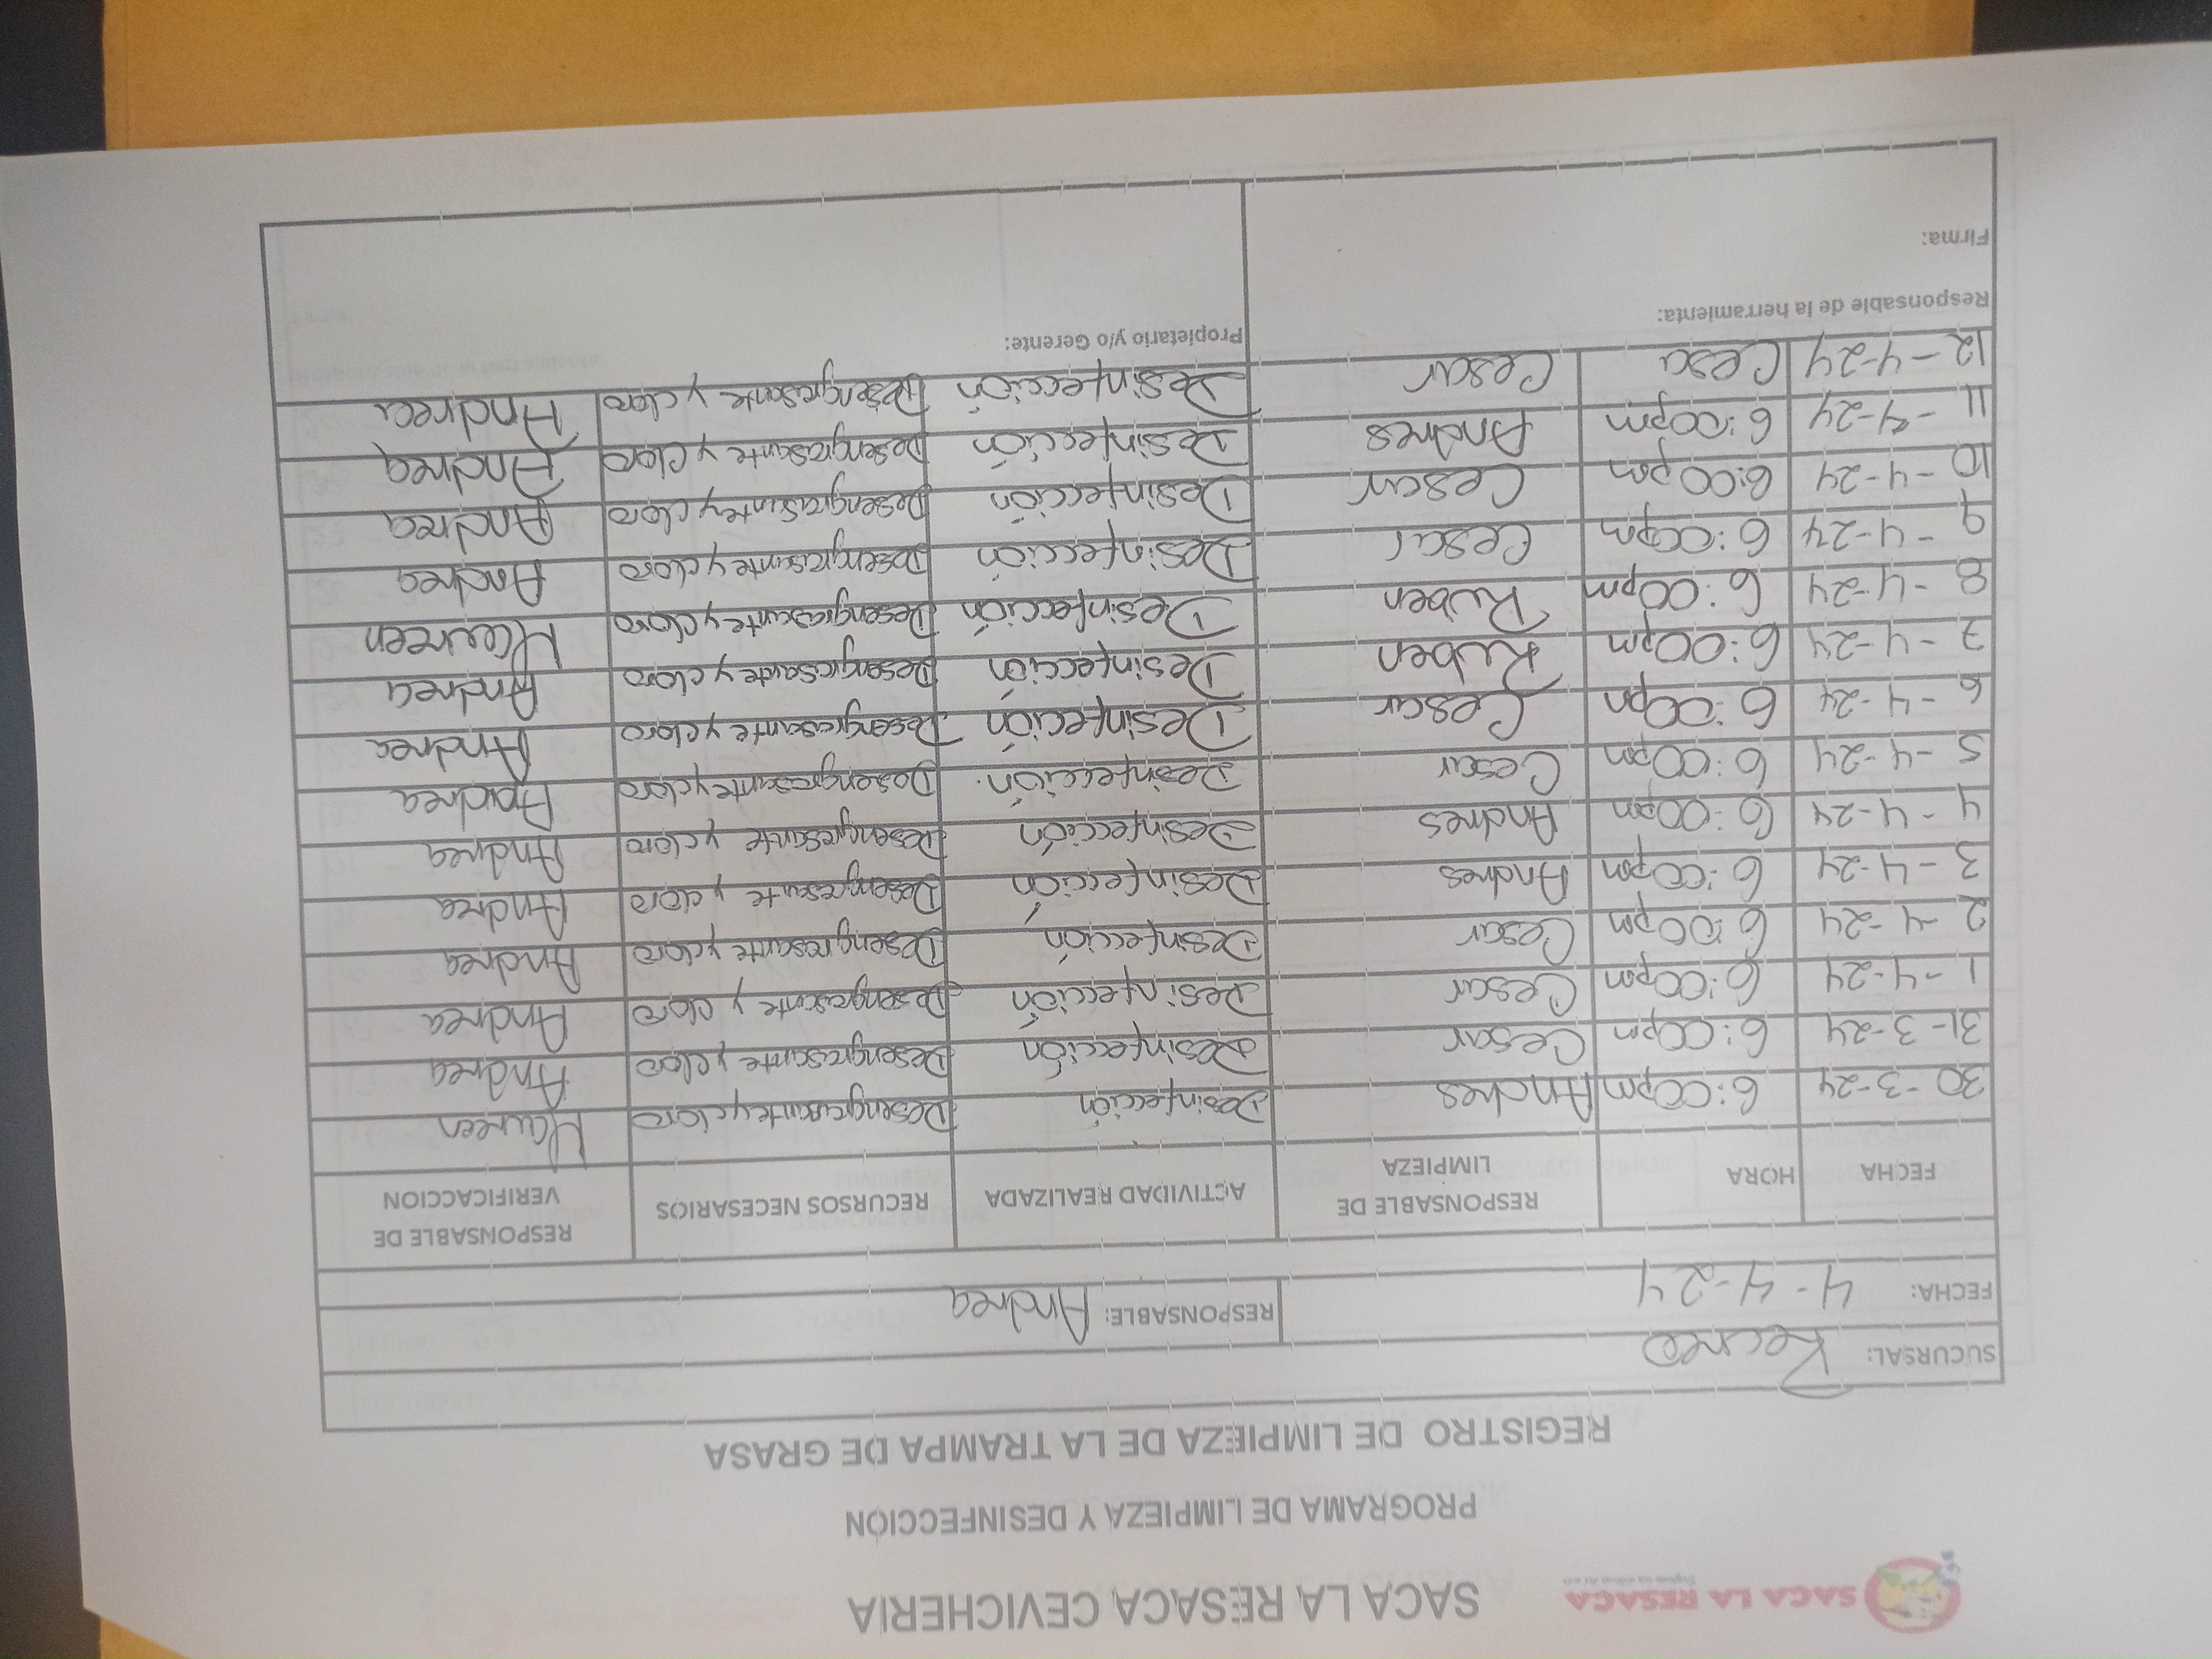 SACA LA RESACA
SACA LA RESACA CEVICHERIA
PROGRAMA DE LIMPIEZA Y DESINFECCION
REGISTRO DE LIMPIEZA DE LA TRAMPA DE GRASA
SUCURSAL: Recreo
FECHA: 4-4-24 RESPONSABLE: Andrea
FECHA HORA RESPONSABLE DE LIMPIEZA ACTIVIDAD REALIZADA RECURSOS NECESARIOS RESPONSABLE DE VERIFICACCION
30-3-24 6:00pm Andres Desinfección Desengrasante y cloro Kauren
31-3-24 6:00pm Cesar Desinfección Desengrasante y cloro Andrea
1-4-24 6:00pm Cesar Desinfección Desengrasante y cloro Andrea
2-4-24 6:00pm Cesar Desinfección Desengrasante y cloro Andrea
3-4-24 6:00pm Andres Desinfección Desengrasante y cloro Andrea
4-4-24 6:00pm Andres Desinfección Desengrasante y cloro Andrea
5-4-24 6:00pm Cesar Desinfección. Desengrasante y cloro Andrea
6-4-24 6:00pm Cesar Desinfección Desengrasante y cloro Andrea
7-4-24 6:00pm Ruben Desinfección Desengrasante y cloro Andrea
8-4-24 6:00pm Ruben Desinfección Desengrasante y cloro Kaureen
9-4-24 6:00pm Cesar Desinfección Desengrasante y cloro Andrea
10-4-24 6:00pm Cesar Desinfección Desengrasante y cloro Andrea
11-4-24 6:00pm Andres Desinfección Desengrasante y cloro Andrea
12-4-24 Cesa Cesar Desinfección Desengrasante y cloro Andrea
Responsable de la herramienta: Propietario y/o Gerente:
Firma: